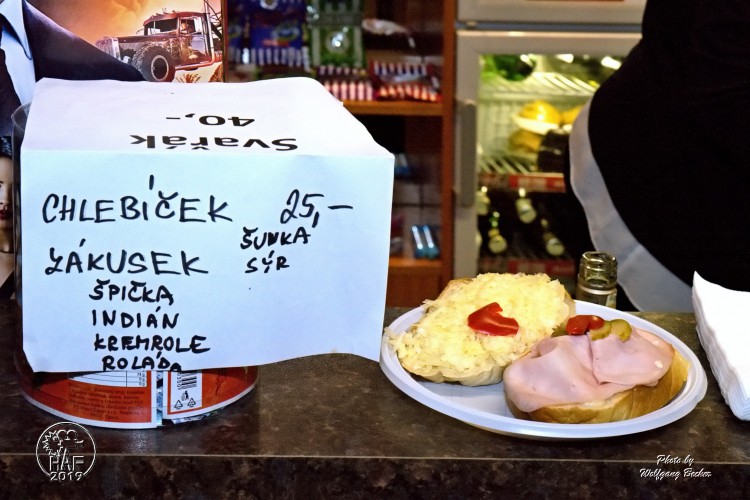 Svařák
40,-
CHLEBÍČEK 25,-
ŠUNKA
ZÁKUSEK SÝR
ŠPIČKA
INDIÁN
KREMROLE
ROLÁDA
HAF
2019
Photo by
Wolfgang Becker